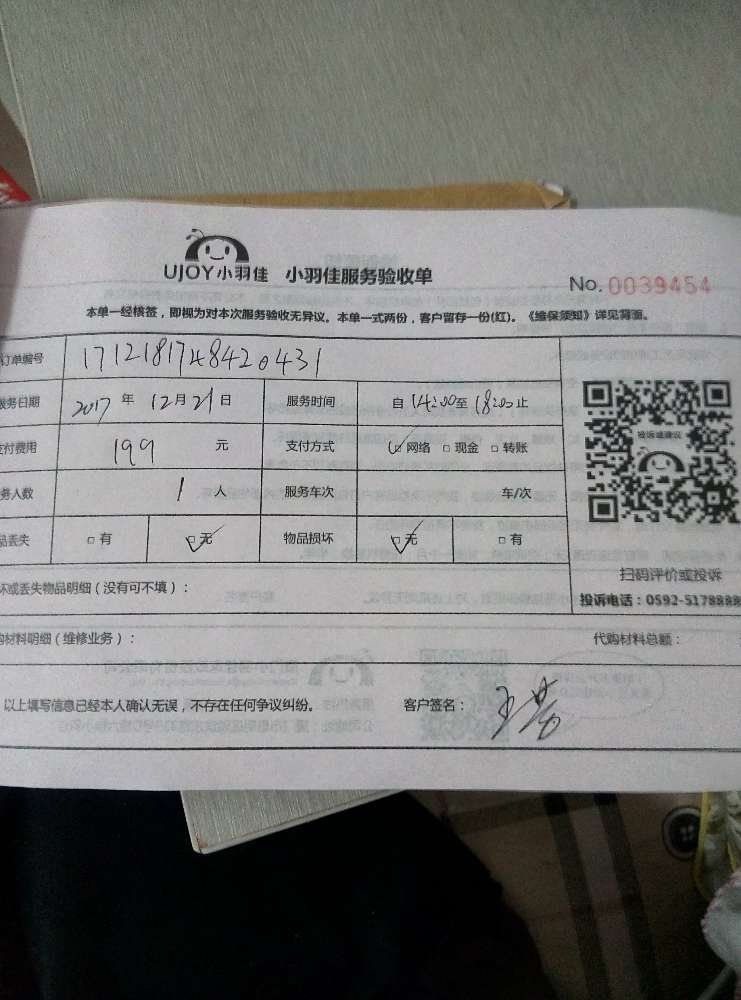 UJOY小羽佳 小羽佳服务验收单 No. 0039454
本单一经核签，即视为对本次服务验收无异议。本单一式两份，客户留存一份(红)。《维保须知》详见背面。
订单编号 1712181748420431
服务日期 2017 年 12 月 21 日 服务时间 自 14:00 至 18:00 止
支付费用 199 元 支付方式 ☑网络 □现金 □转账
务人数 1 人 服务车次 车/次
品丢失 □有 ☑无 物品损坏 ☑无 □有
投诉或建议
扫码评价或投诉
坏或丢失物品明细（没有可不填）： 投诉电话：0592-5178888
购材料明细（维修业务）： 代购材料总额：
以上填写信息已经本人确认无误，不存在任何争议纠纷。 客户签名：